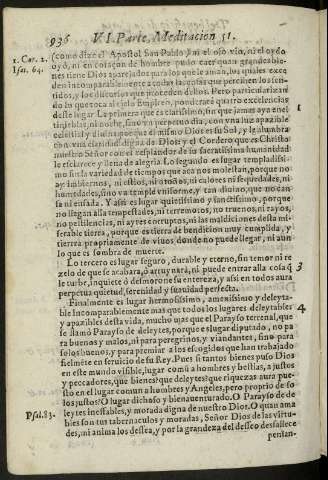 936 VI. Parte, Meditacion 51.
1. Cor. 2.
Isai. 64.
(como dize el Apostol San Pablo) ni el ojo vio, ni el oydo
oyò, ni en coraçon de hombre pudo caer quan grandes bie-
nes tiene Dios aparejados para los que le aman, los quales exce-
den incomparablemente a todas las cosas que perciben los sen-
tidos, y los discursos que pueden dellos. Pero particularmente
en lo que toca al cielo Empireo, ponderarè quatro excelencias
deste lugar. La primera que es clarissimo, sin que jamas aya en el
tinieblas, ni noche, sino vn perpetuo dia, con vna luz apazible
celestial y diuina; porque el mismo Dios es su Sol, y le alumbra
con vna claridad digna de Dios; y el Cordero que es Christo
nuestro Señor con el resplandor de su sacratissima humanidad
le esclarece y llena de alegria. Lo segundo es lugar templadissi-
mo sin la variedad de tiempos que acà nos molestan, porque no
ay inuiernos, ni estios, ni otoños, ni calores ni sequedades, ni
humedades, sino vn temple vniforme, y tan diuino, que no can-
sa ni enfada. Y assi es lugar quietissimo y sanctissimo, porque
no llegan allà tempestades, ni terremotos, no truenos, ni rayos,
no pestilencias, ni ayres corruptos, ni las maldiciones desta mi-
serable tierra, porque es tierra de bendicion muy cumplida, y
tierra propriamente de viuos, donde no puede llegar, ni aun
lo que es sombra de muerte.
Lo tercero es lugar seguro, durable y eterno, sin temor ni re
zelo de que se acabarà, ò arruynarà, ni puede entrar alla cosa q̃
le turbe, inquiete ò desmorone su entereza, y assi en todos aura
perpetua quietud, serenidad y suauidad perfecta.
3
Finalmente es lugar hermosissimo, amenissimo y deleyta-
ble incomparablemente mas que todos los lugares deleytables
y apazibles desta vida, mucho mas que el Parayso terrenal, que
se llamò Parayso de deleytes, porque es lugar diputado, no pa
ra buenos y malos, ni para peregrinos, y viandantes, sino para
solos buenos, y para premiar a los escogidos que han trabajado
fielmente en seruicio de su Rey. Pues si tantos bienes puso Dios
en este mundo visible, lugar comũ a hombres y bestias, a justos
y peccadores, que bienes? que deleytes? que riquezas aurà pue-
sto en el lugar comun a hombres y Angeles, pero proprio de so
los justos? O lugar dichoso y bienauenturado. O Parayso de de
leytes ineffables, y morada digna de nuestro Dios. O quan ama
bles son tus tabernaculos y moradas, Señor Dios de las virtu-
des, mi anima los dessea, y por la grandeza del desseo desfallece
4
Psal. 83.
pensan-